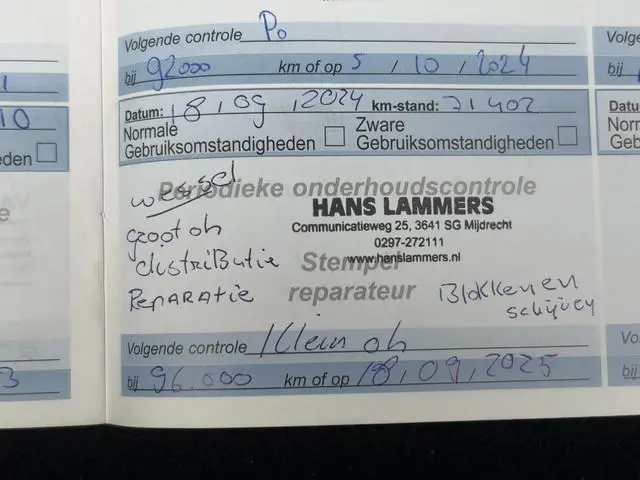 Volgende controle Po
bij 92000 km of op 5 / 10 / 2024
Datum: 18 , 09 , 2024 km-stand: 71402
Normale Gebruiksomstandigheden
Zware Gebruiksomstandigheden
Periodieke onderhoudscontrole
wessel
HANS LAMMERS
Communicatieweg 25, 3641 SG Mijdrecht
0297-272111
www.hanslammers.nl
groot oh
distributie
Reparatie
Stempel
reparateur
Blokken en
schijven
Volgende controle Klein oh
bij 96.000 km of op 18 , 09 , 2025
10
eden
3
Volge
bij
Datu
Norm
Gebr
Vo
bij